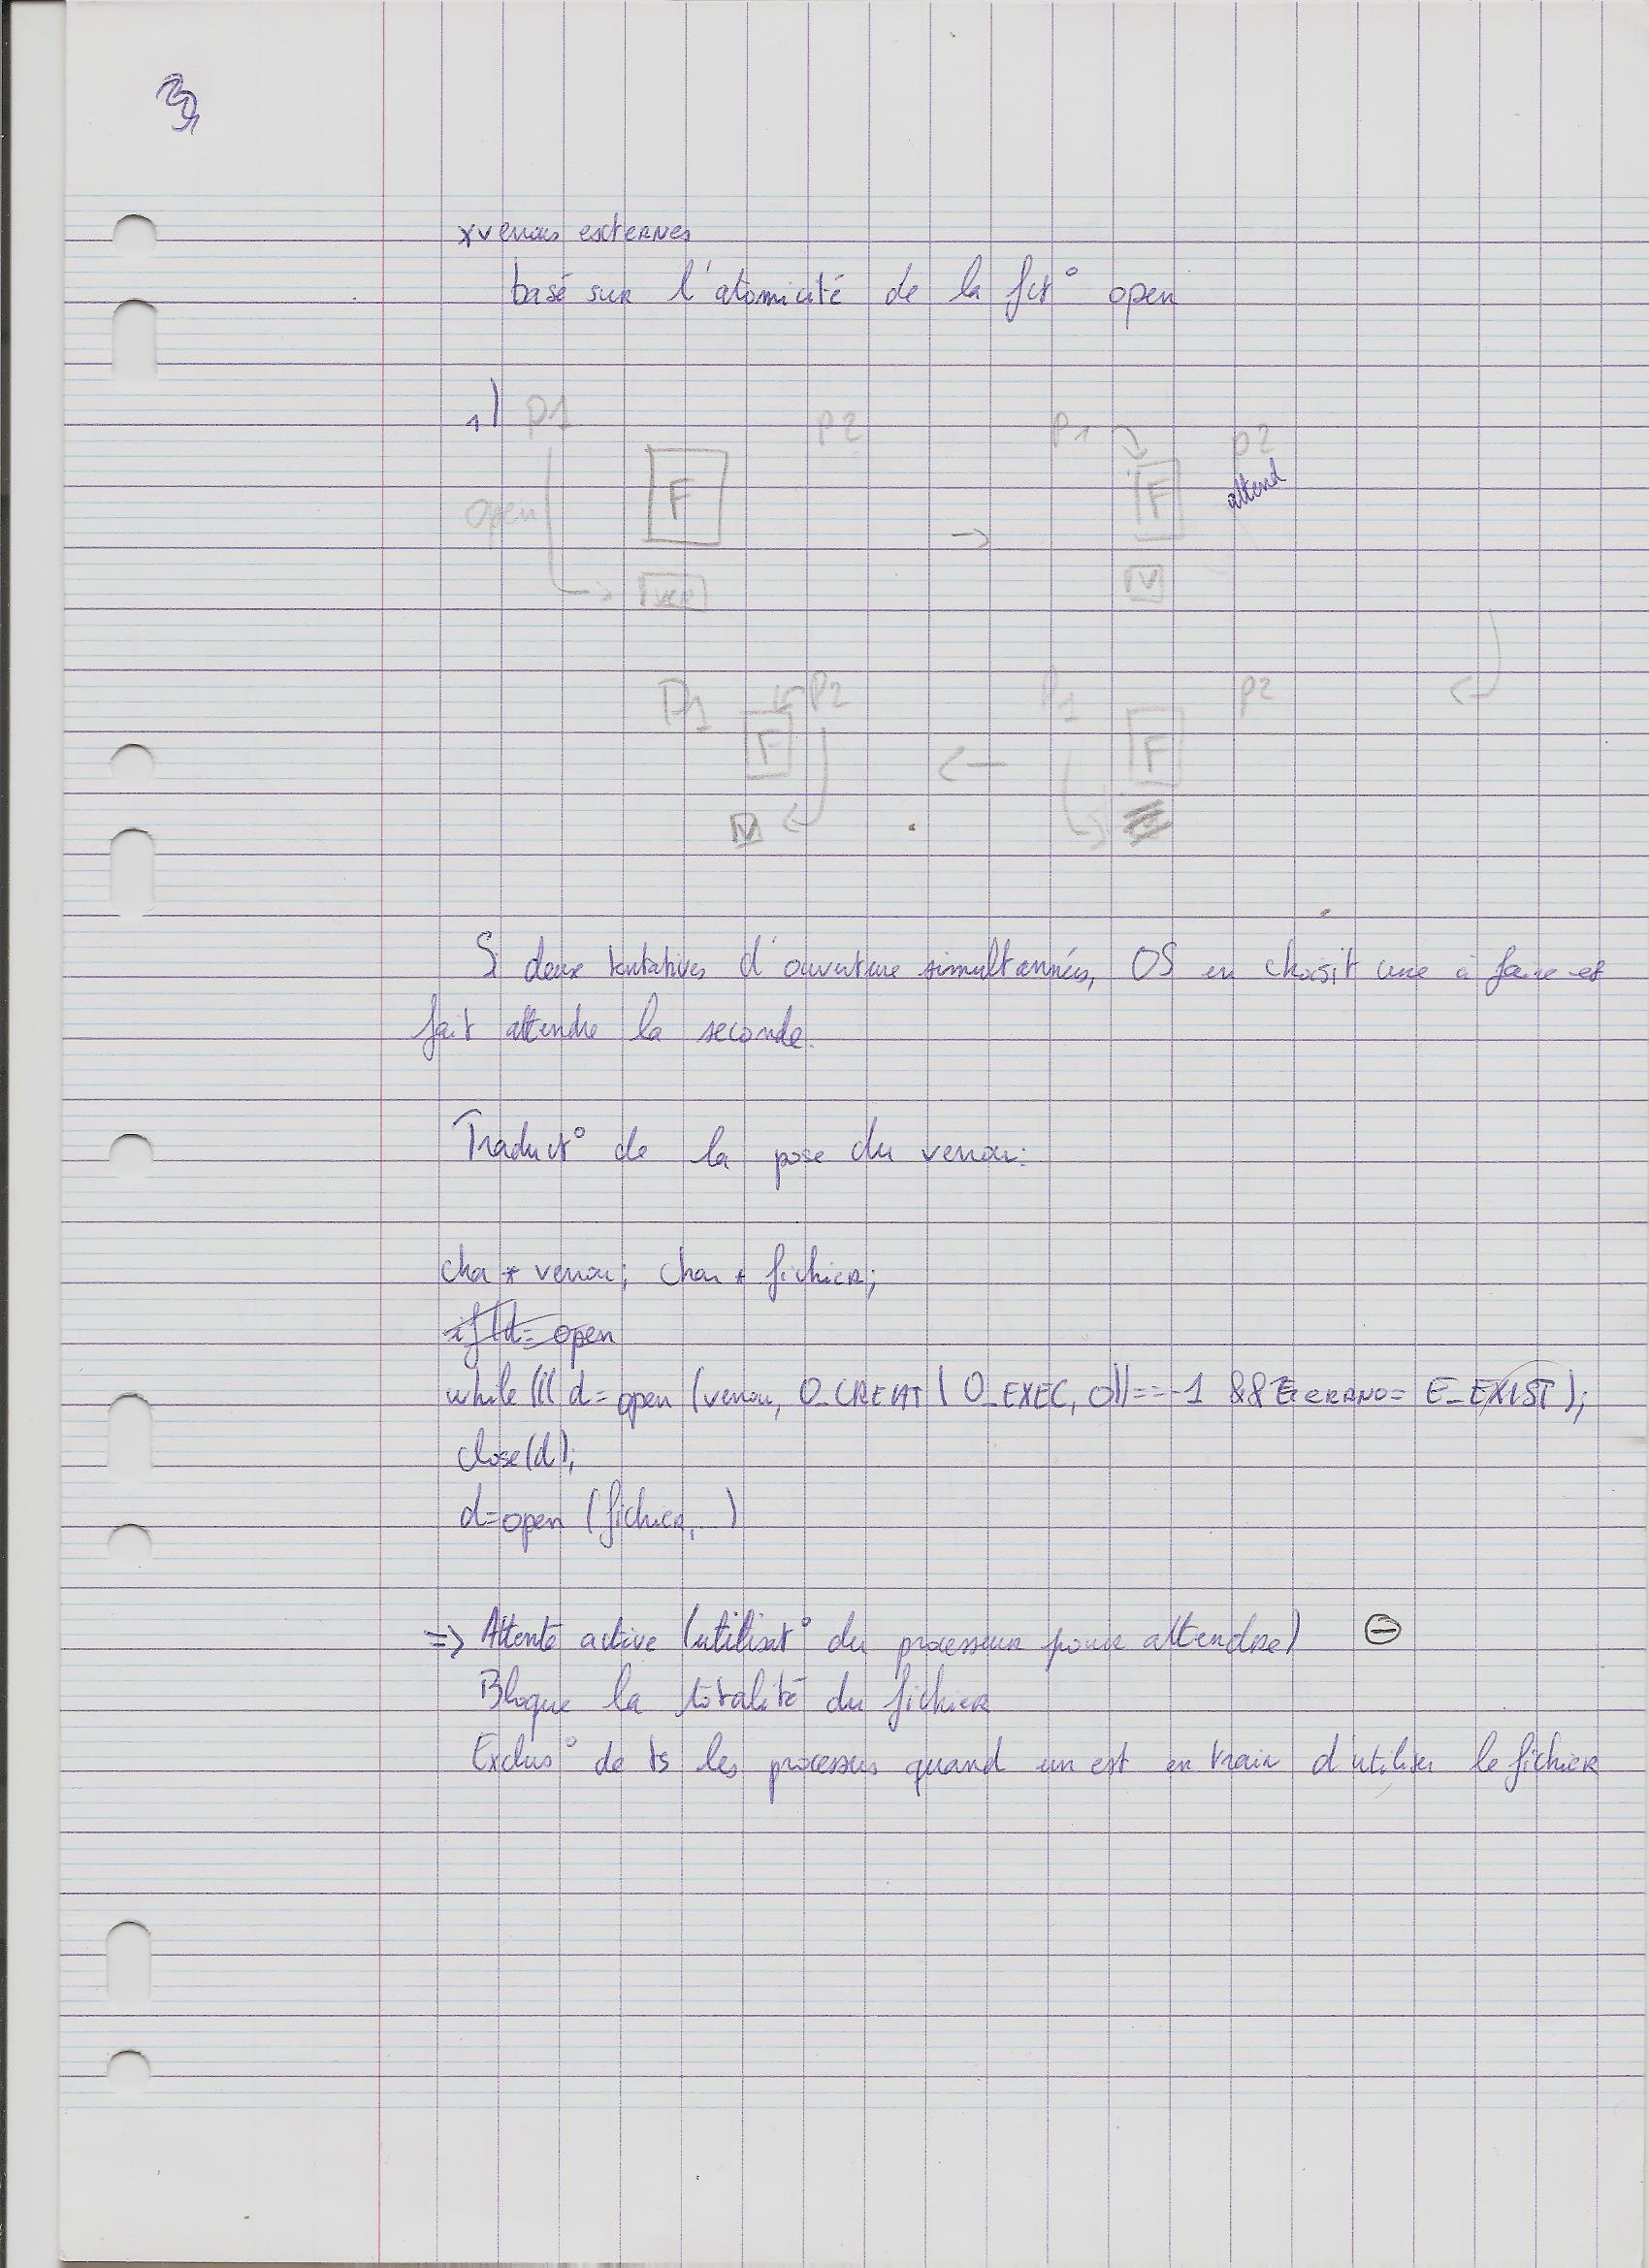 3)
* verrous externes
basé sur l'atomicité de la fct° open
1) P1 P2 P1 P2
attend
open F → F
ver V
P1 P2 P1 P2
F ← F
V
Si deux tentatives d'ouverture simultannées, OS en choisit une à faire et
fait attendre la seconde.
Traduct° de la pose du verrou:
cha * verrou; char * fichier;
if (d= open
while ((( d= open (verrou, O_CREAT | O_EXEC, 0)) == -1 && ERRNO= E_EXIST );
close(d);
d=open (fichier, )
=> Attente active (utilisat° du processeur pour attendre) ⊖
Bloque la totalité du fichier
Exclus° de ts les processus quand un est en train d'utiliser le fichier